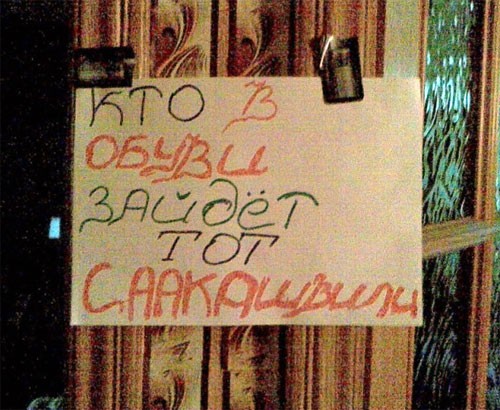 КТО В
ОБУВИ
ЗАЙДЁТ
ТОТ
СААКАШВИЛИ